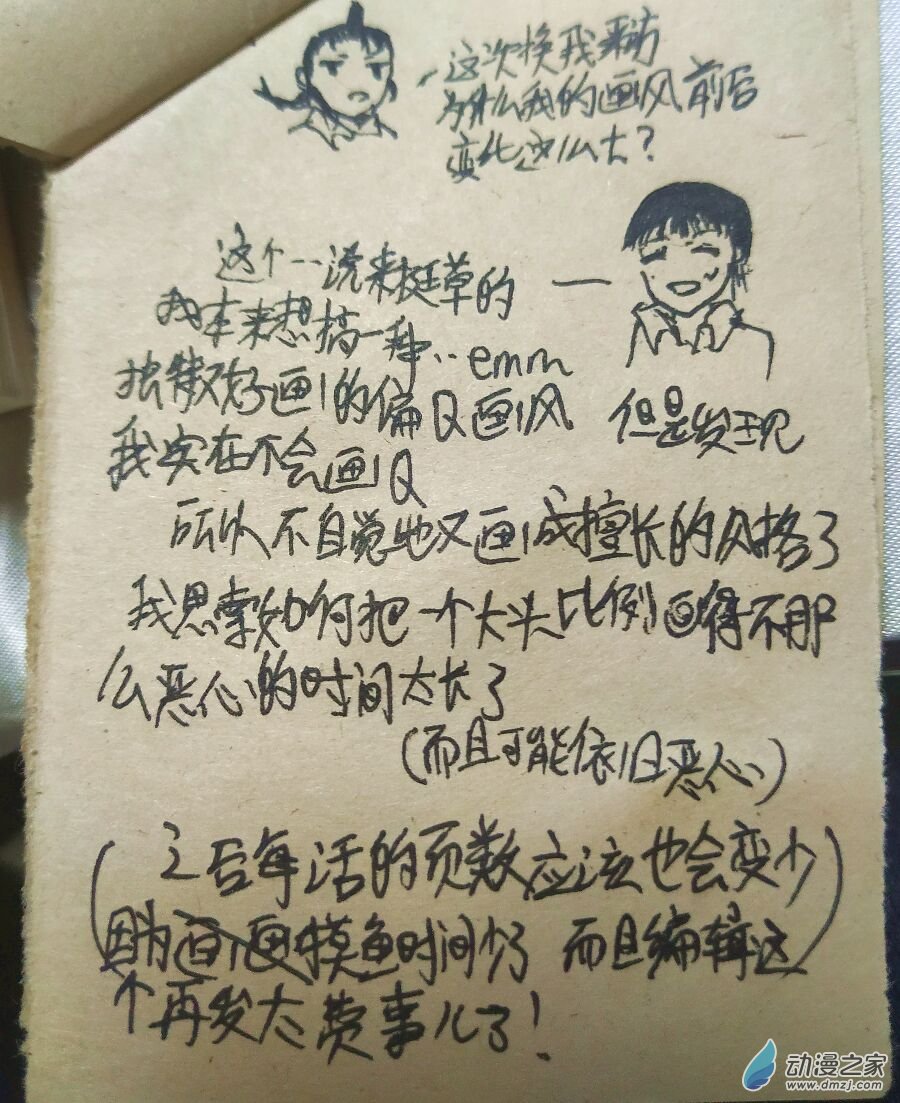 这次换我来访
为什么我的画风前后
变化这么大？
这个…说来挺草的
我本来想搞一种··emm
独特又好画的偏Q画风
但是发现
我实在不会画Q
所以不自觉地又画成擅长的风格了
我思索如何把一个大头比例画得不那
么恶心的时间太长了
（而且可能依旧恶心）
（之后每话的页数应该也会变少
因为画画摸鱼时间少了 而且编辑这
个再发太费事儿了！）
动漫之家
www.dmzj.com